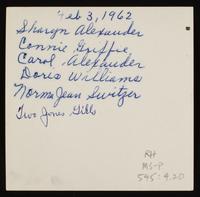 Feb 3, 1962
Sharyn Alexander
Connie Griffie,
Carol Alexander
Doris Williams
Norma Jean Switzer
Two Jones Girls
RH
MS-P
545:4.20